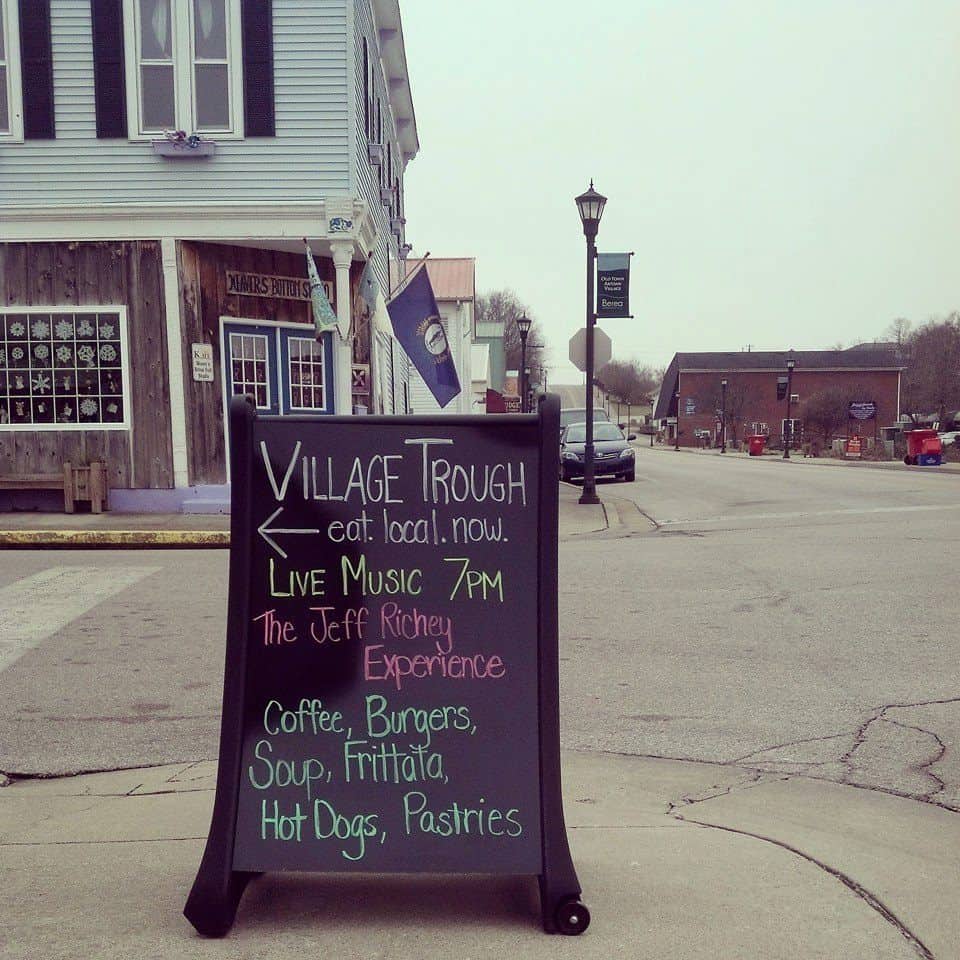 WEAVERS BOTTOM
OLD TOWN
ARTISAN
VILLAGE
Berea
VILLAGE TROUGH
← eat. local. now.
LIVE MUSIC 7PM
The Jeff Richey
Experience
Coffee, Burgers,
Soup, Frittata,
Hot Dogs, Pastries